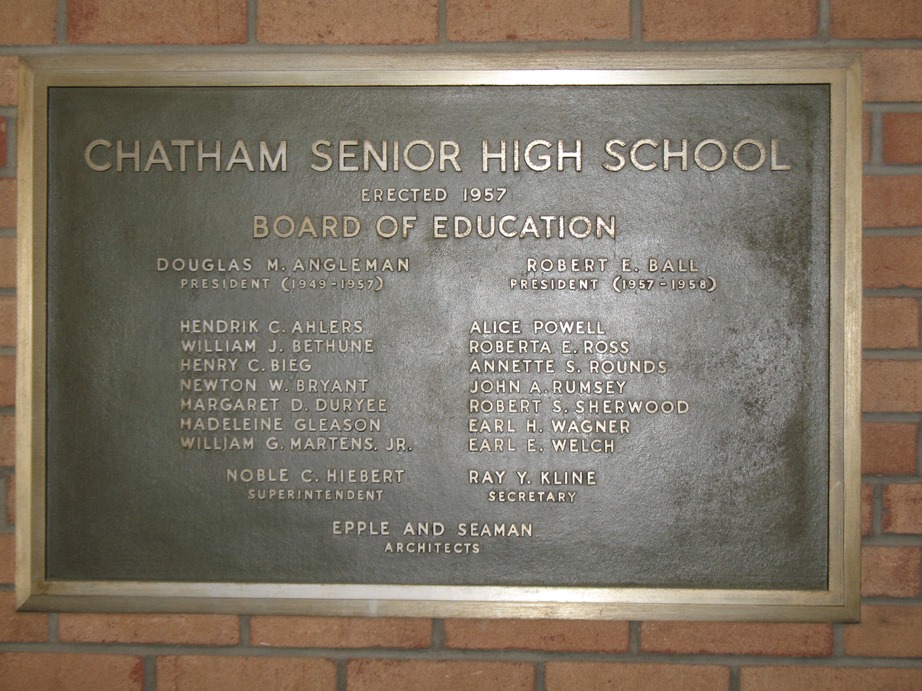 CHATHAM SENIOR HIGH SCHOOL
ERECTED 1957
BOARD OF EDUCATION
DOUGLAS M. ANGLEMAN
PRESIDENT (1949-1957)
ROBERT E. BALL
PRESIDENT (1957-1958)
HENDRIK C. AHLERS
WILLIAM J. BETHUNE
HENRY C. BIEG
NEWTON W. BRYANT
MARGARET D. DURYEE
MADELEINE GLEASON
WILLIAM G. MARTENS, JR.
ALICE POWELL
ROBERTA E. ROSS
ANNETTE S. ROUNDS
JOHN A. RUMSEY
ROBERT S. SHERWOOD
EARL H. WAGNER
EARL E. WELCH
NOBLE C. HIEBERT
SUPERINTENDENT
RAY Y. KLINE
SECRETARY
EPPLE AND SEAMAN
ARCHITECTS